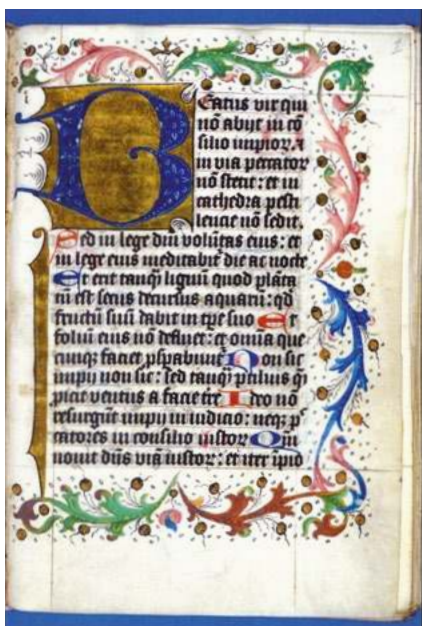 Beatus vir qui
nō abijt in cō
silio impiorꝝ ⁊
in via peccatoꝝ
nō stetit: et in
cathedra pesti
lencie nō sedit.
Sed in lege dn̄i volūtas eius: et
in lege eius meditabit̄ die ac nocte
Et erit tanqȝ lignū quod plāta
tū est secus decursus aquarū: qd̄
fructū suū dabit in tp̄e suo Et
foliū eius nō defluet: et omīa que
cunqȝ faciet ꝓsꝑabunt̄ Non sic
impij non sic: sed tanqȝ puluis quē
ꝓicit ventus a facie tr̄e Ideo nō
resurgūt impij in iudicio: neqȝ pec
catores in consilio iustoꝝ Qm̄
nouit dn̄s viā iustoꝝ: et iter īpio